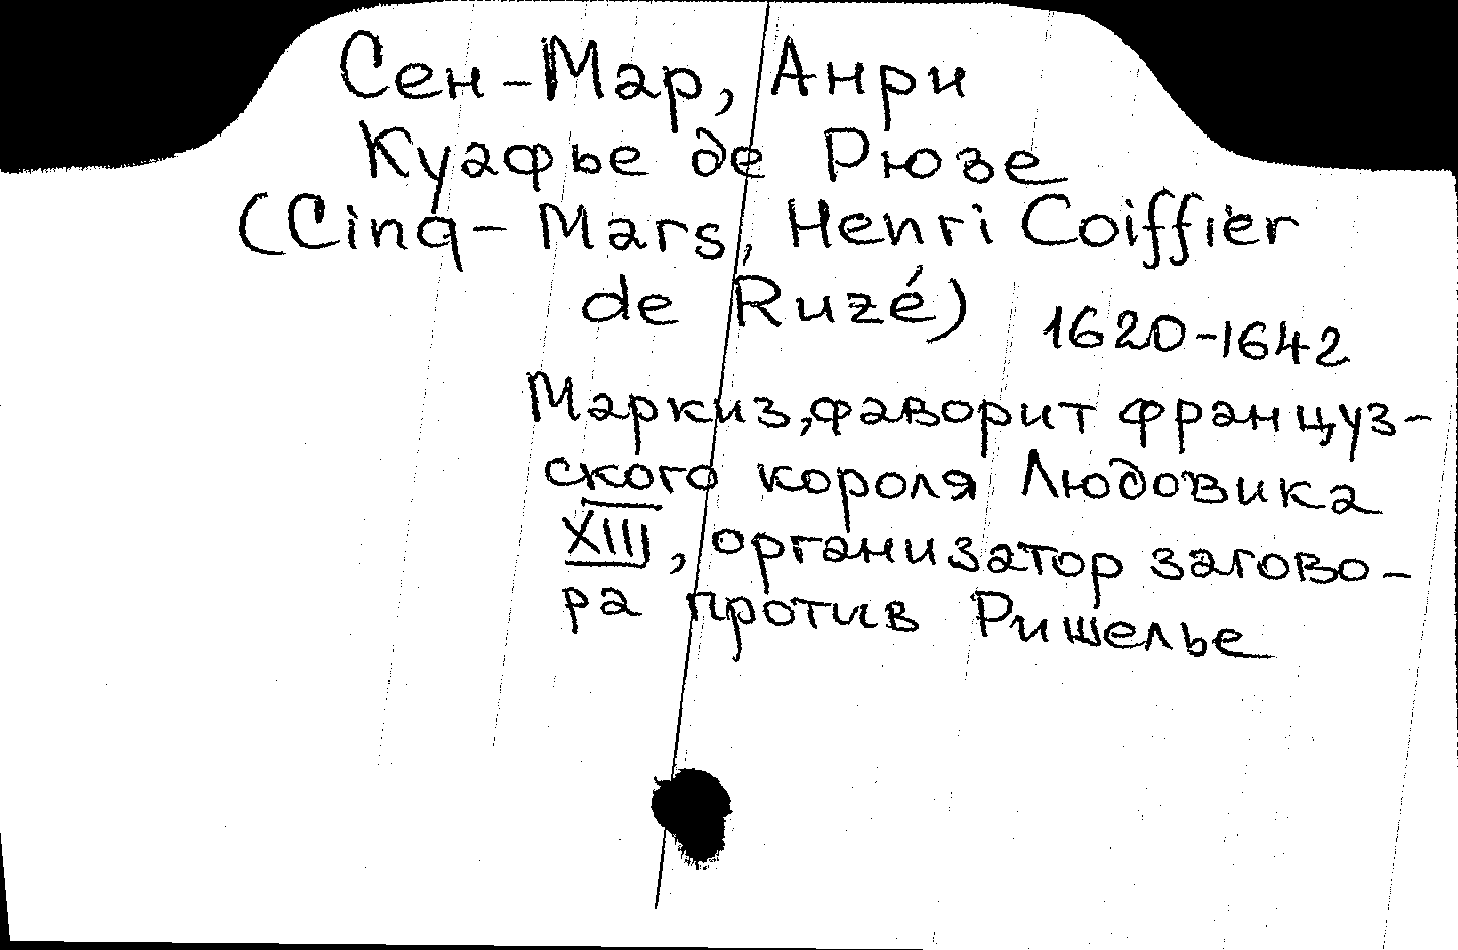 Сен-Мар, Анри
Куафье де Рюзе
(Cinq-Mars, Henri Coiffier
de Ruzé) 1620-1642
Маркиз, фаворит француз-
ского короля Людовика
XIII, организатор загово-
ра против Ришелье